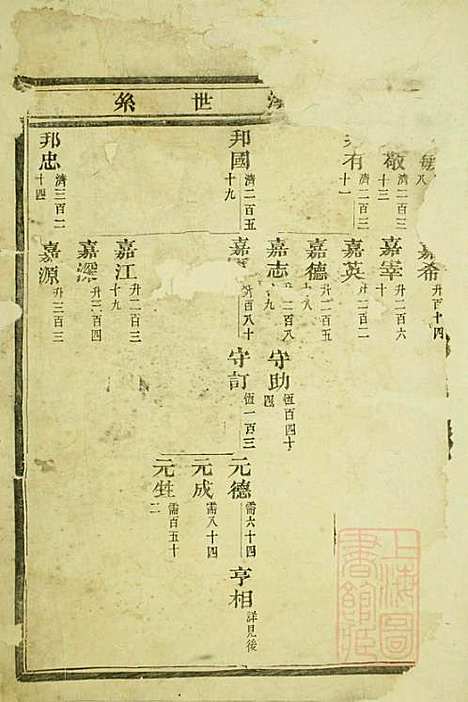 世系
嘉希 升百十四
敬 濟二百三十三
嘉宰 升二百六十
有 濟二百三十一
嘉英 升二百二
嘉德 升二百五八
嘉志 升二百八九
守助 恆百四十四
邦國 濟二百五十九
嘉 升百八十
守訂 恆一百三
元德 需六十四
亨相 詳見後
元成 需八十四
元甡 需百五十二
嘉江 升二百三十九
嘉深 升二百四
邦忠 濟三百二十四
嘉源 升三百三
上海圖書館藏